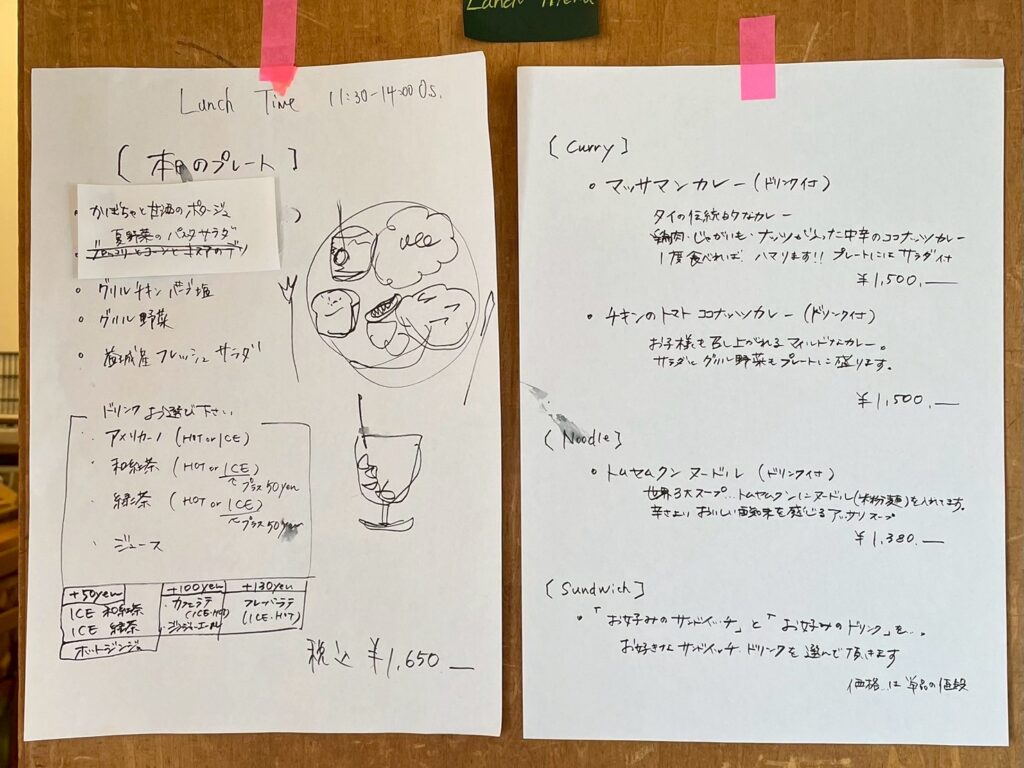 Lunch Menu
Lunch Time 11:30-14:00 Os.
[ 本日のプレート ]
・かぼちゃと甘酒のポタージュ
夏野菜のパスタサラダ
・グリルチキン
・グリル野菜
・益城産 フレッシュ サラダ
ドリンクお選び下さい
・アメリカーノ (HOT or ICE)
・和紅茶 (HOT or ICE)
プラス50yen
・緑茶 (HOT or ICE)
プラス50yen
・ジュース
+50yen
ICE 和紅茶
ICE 緑茶
ホットジンジャ
+100yen
・カフェラテ
(ICE・HOT)
・ジンジャーエール
+130yen
フレーバラテ
(ICE・HOT)
税込 ¥1,650.—
[ Curry ]
・マッサマンカレー (ドリンク付)
タイの伝統的なカレー
鶏肉・じゃがいも・ナッツが入った中辛のココナッツカレー
1度食べればハマります!! プレートにはサラダ付
¥1,500.—
・チキンのトマト ココナッツカレー (ドリンク付)
お子様も召し上がれるマイルドなカレー。
サラダとグリル野菜もプレートに盛ります。
¥1,500.—
[ Noodle ]
・トムヤムクン ヌードル (ドリンク付)
世界3大スープ…トムヤムクンにヌードル(米粉麺)を入れてます。
辛さよりおいしい酸味を感じるアッサリスープ
¥1,380.—
[ Sandwich ]
・「お好みのサンドイッチ」と「お好みのドリンク」を…
お好きなサンドイッチ ドリンクを選んで頂きます
価格は単品の値段